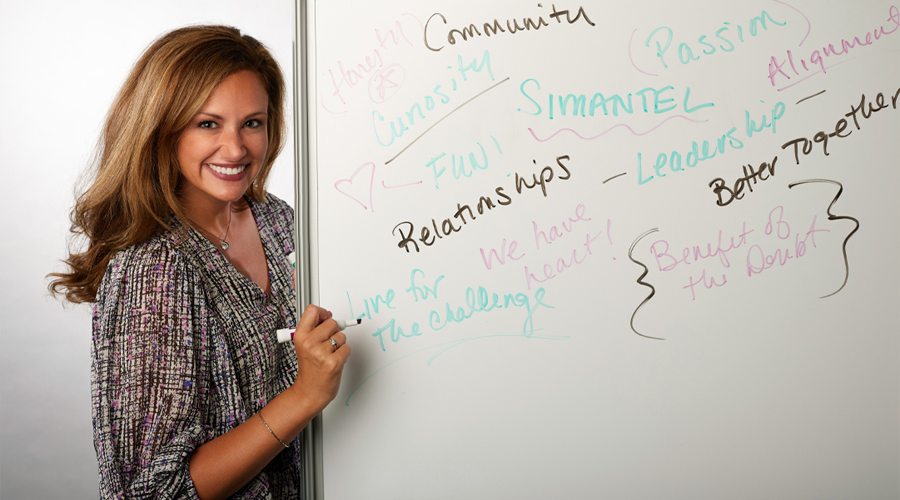 Community
(Honesty)
(Passion)
Curiosity
Alignment
SIMANTEL
FUN!
Leadership
Better Together
Relationships
We have
heart!
Benefit of
the Doubt
Live for
the challenge